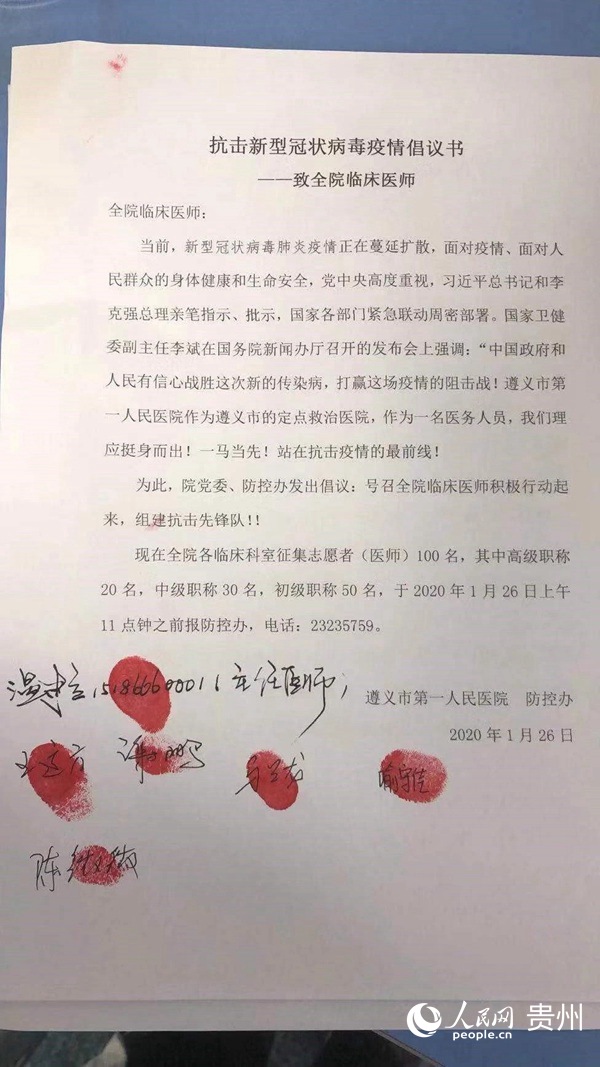 抗击新型冠状病毒疫情倡议书
——致全院临床医师
全院临床医师：
当前，新型冠状病毒肺炎疫情正在蔓延扩散，面对疫情、面对人
民群众的身体健康和生命安全，党中央高度重视，习近平总书记和李
克强总理亲笔指示、批示，国家各部门紧急联动周密部署。国家卫健
委副主任李斌在国务院新闻办厅召开的发布会上强调：“中国政府和
人民有信心战胜这次新的传染病，打赢这场疫情的阻击战！遵义市第
一人民医院作为遵义市的定点救治医院，作为一名医务人员，我们理
应挺身而出！一马当先！站在抗击疫情的最前线！
为此，院党委、防控办发出倡议：号召全院临床医师积极行动起
来，组建抗击先锋队！！
现在全院各临床科室征集志愿者（医师）100名，其中高级职称
20名，中级职称30名，初级职称50名，于2020年1月26日上午
11点钟之前报防控办，电话：23235759。
主任医师
遵义市第一人民医院 防控办
2020年1月26日
人民网 贵州
people.cn